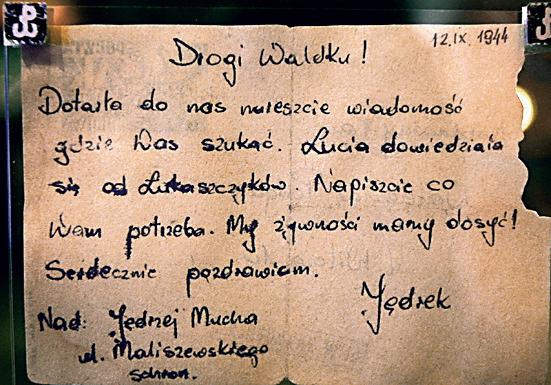 12.IX. 1944
Drogi Waldku!
Dotarła do nas nareszcie wiadomość
gdzie Was szukać. Lucia dowiedziała
się od Łukaszczyków. Napiszcie co
Wam potrzeba. My żywności mamy dosyć!
Serdecznie pozdrawiam.
Jędrek
Nad: Jędrzej Mucha
ul. Maliszewskiego
schron.